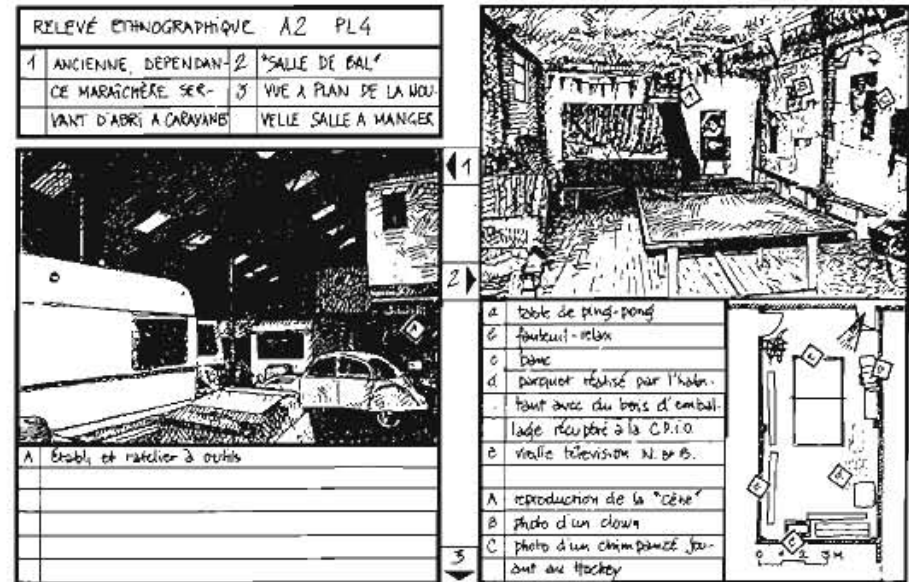 RELEVÉ ETHNOGRAPHIQUE A2 PL4
1 ANCIENNE DEPENDAN-
CE MARAÎCHÈRE SER-
VANT D'ABRI A CARAVANE
2 "SALLE DE BAL"
3 VUE A PLAN DE LA NOU-
VELLE SALLE A MANGER
1
2
3
A Établi et ratelier à outils
a table de ping-pong
b fauteuil-relax
c banc
d parquet réalisé par l'habi-
tant avec du bois d'embal-
lage récupéré à la C.P.I.O.
e vieille télévision N. et B.
A reproduction de la "Cène"
B photo d'un clown
C photo d'un chimpanzé jou-
ant au Hockey
A
C
0 1 2 3M